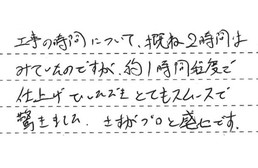 工事の時間について、概ね2時間は
みていたのですが、約1時間程度で
仕上げていただきとてもスムーズで
驚きました。さすがプロと感心です。